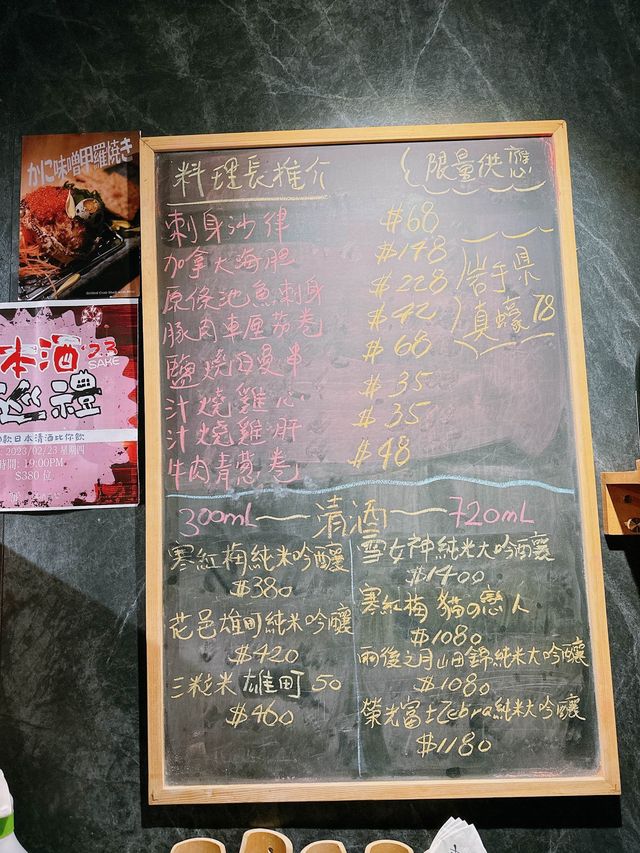 かに味噌甲羅焼き
本酒
2.3
SAKE
禮
款日本清酒比你飲
2023/02/23 星期四
時間: 19:00PM
$380 位
料理長推介
刺身沙律 $68
加拿大海胆 $148
原條池魚刺身 $228
豚肉車厘茄卷 $42
鹽燒白鱔串 $68
汁燒雞心 $35
汁燒雞肝 $35
牛肉青蔥卷 $48
限量供應
岩手県
真蠔 78
300mL 清酒 720mL
寒紅梅純米吟釀
$380
花邑雄町純米吟釀
$420
三粒米 雄町 50
$460
雪女神純米大吟釀
$1400
寒紅梅 貓の戀人
$1080
雨後之月山田錦純米大吟釀
$1080
榮光富士Zebra純米大吟釀
$1180